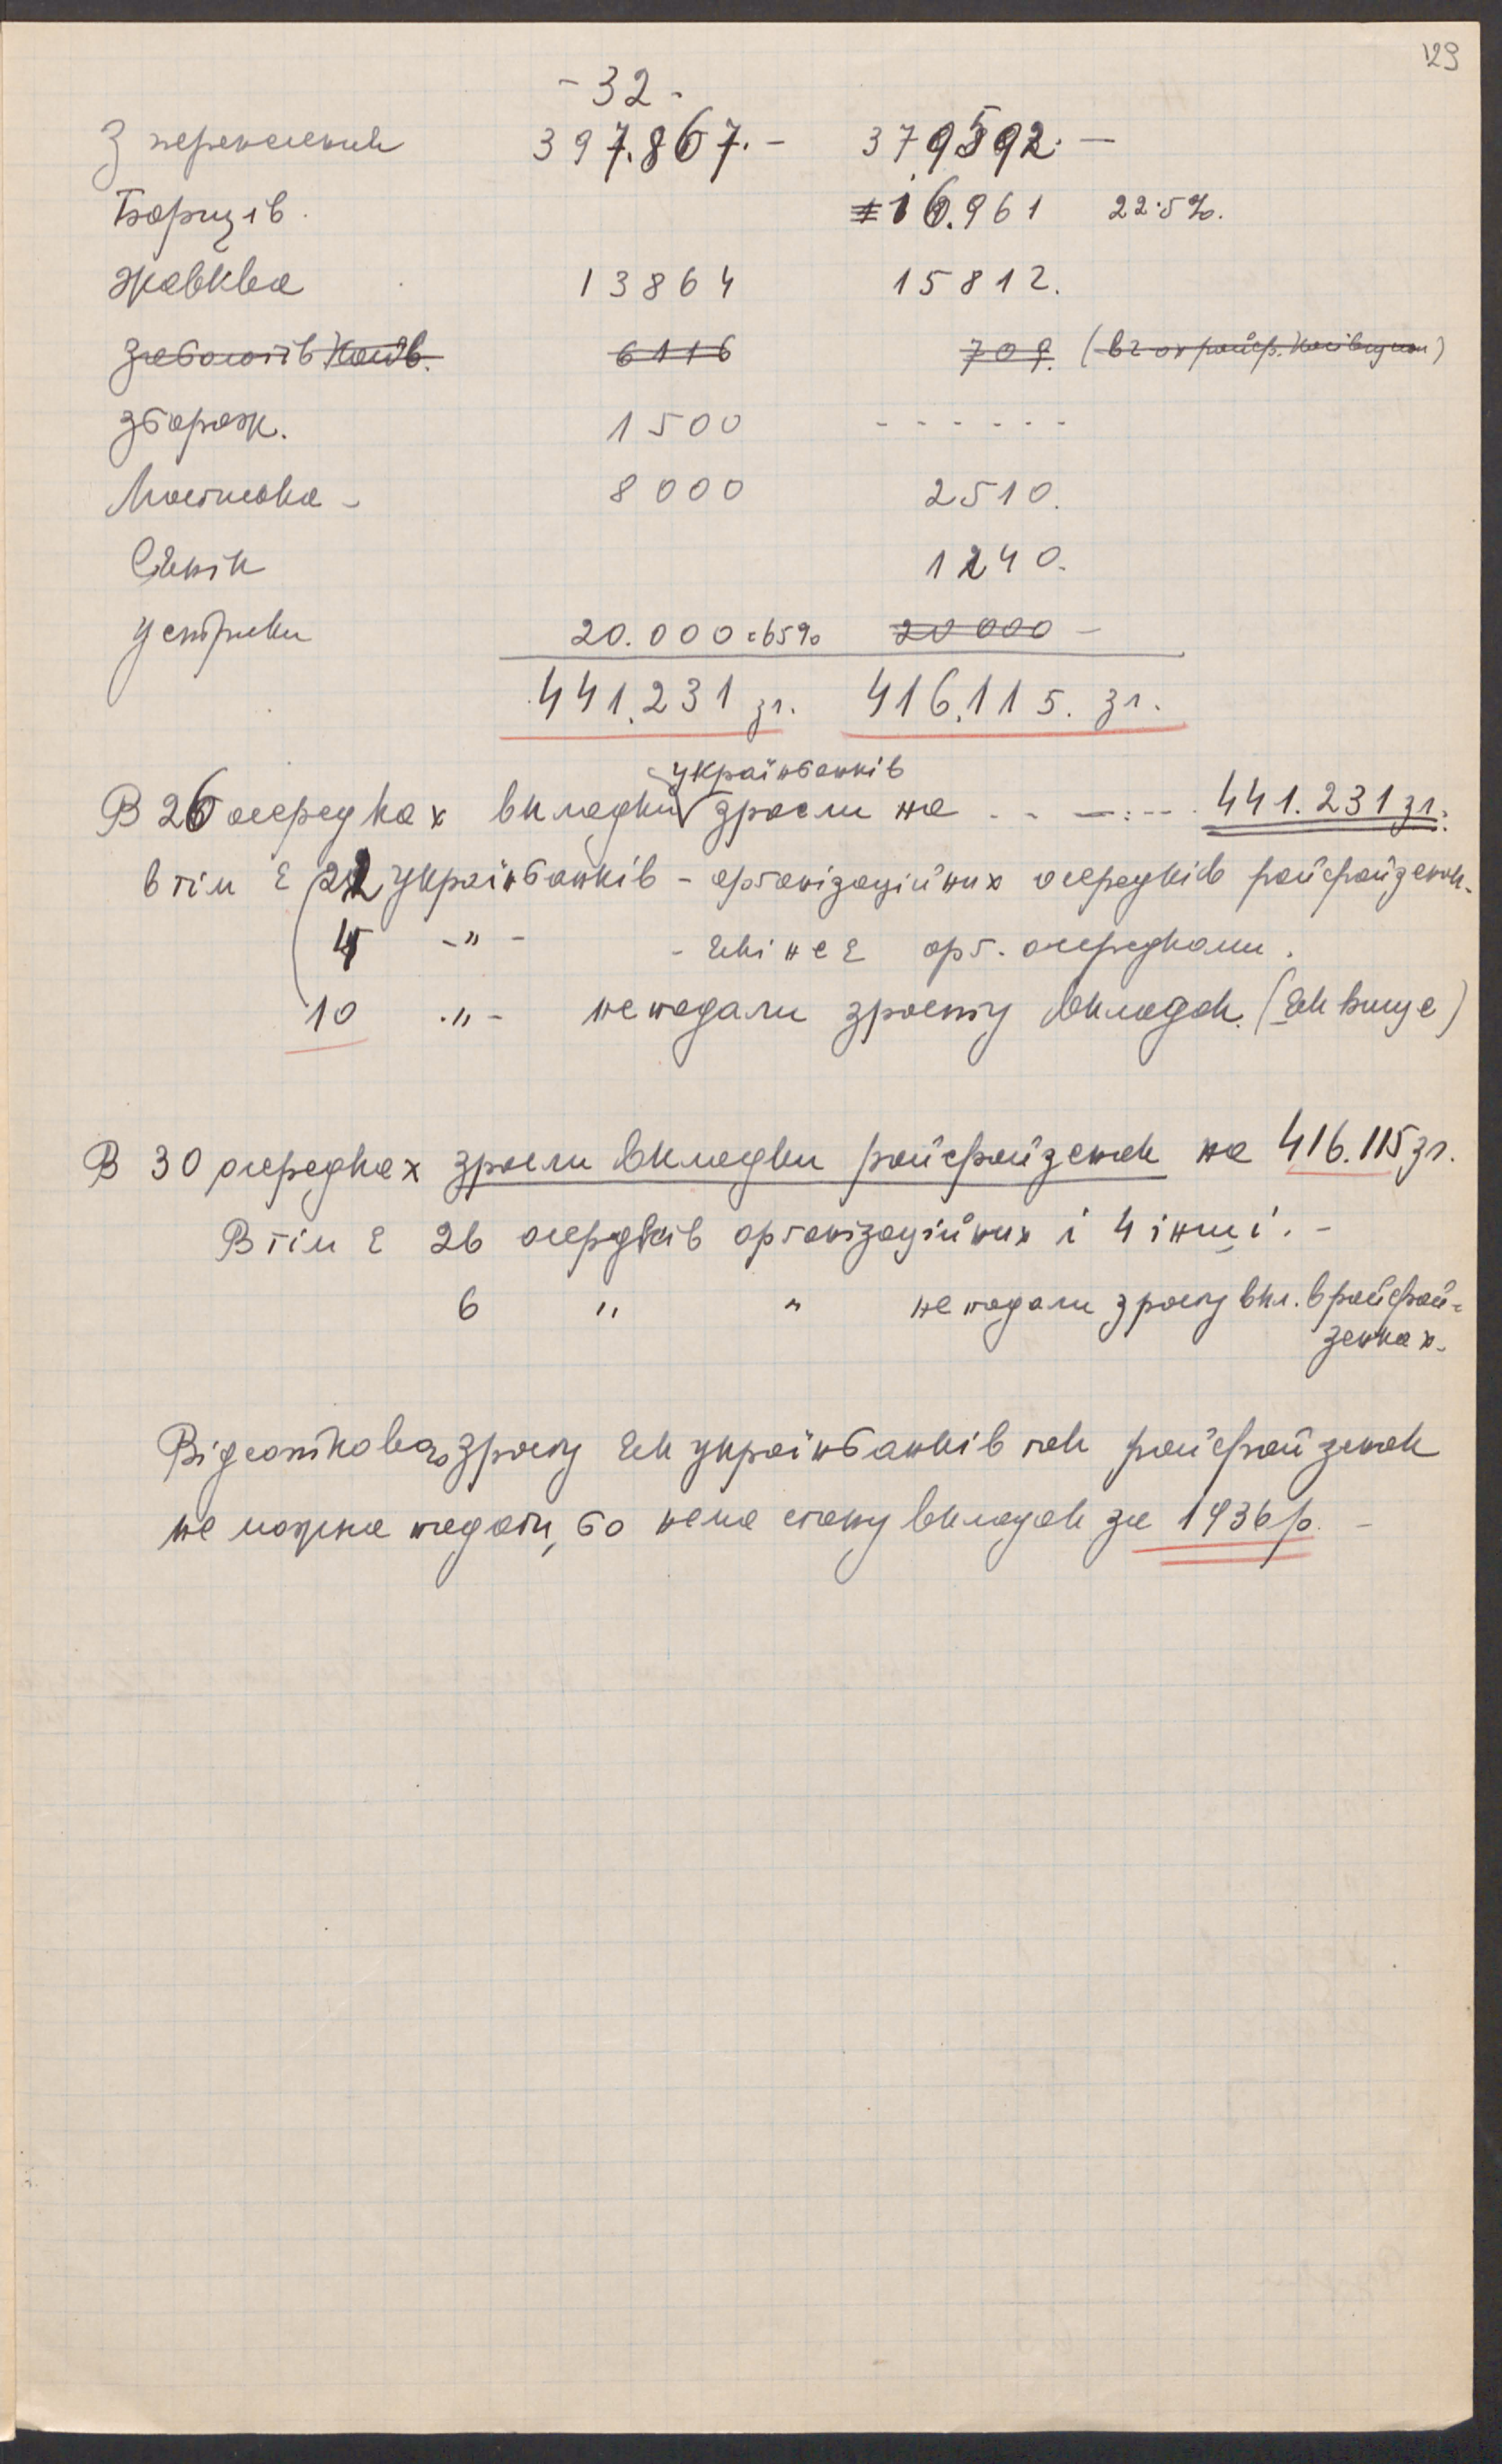 129
- 32 -
З перенесення 397.867.- 379592.-
Борщів. 16.961 22.5%.
Жовква 13864 15812.
Заболотів Коло. 6116 709. (
Збараж. 1500 - - - - - -
Мостиська - 8000 2510.
Сянік 1240.
Устрики 20.000 = 65% 20 000 -
441.231 зл. 416.115. зл.
українбанків
В 26 осередках вкладки зросли на . . - . - - . 441.231 зл.
в тім є 22 українбанків - орґанізаційних осередків райфайзенок.
4 -"- - які не є орґ. осередками.
10 -"- не подали зросту вкладок. (як вище)
В 30 осередках зросли вкладки райфайзенок на 416.115 зл.
В тім є 26 осередків орґанізаційних і 4 інші. -
6 " " не подали зросту вкл. в райфай-
зенках.
Відсоткового зросту як українбанків так райфайзенок
не можна подати, бо нема стану вкладок за 1936 р. -